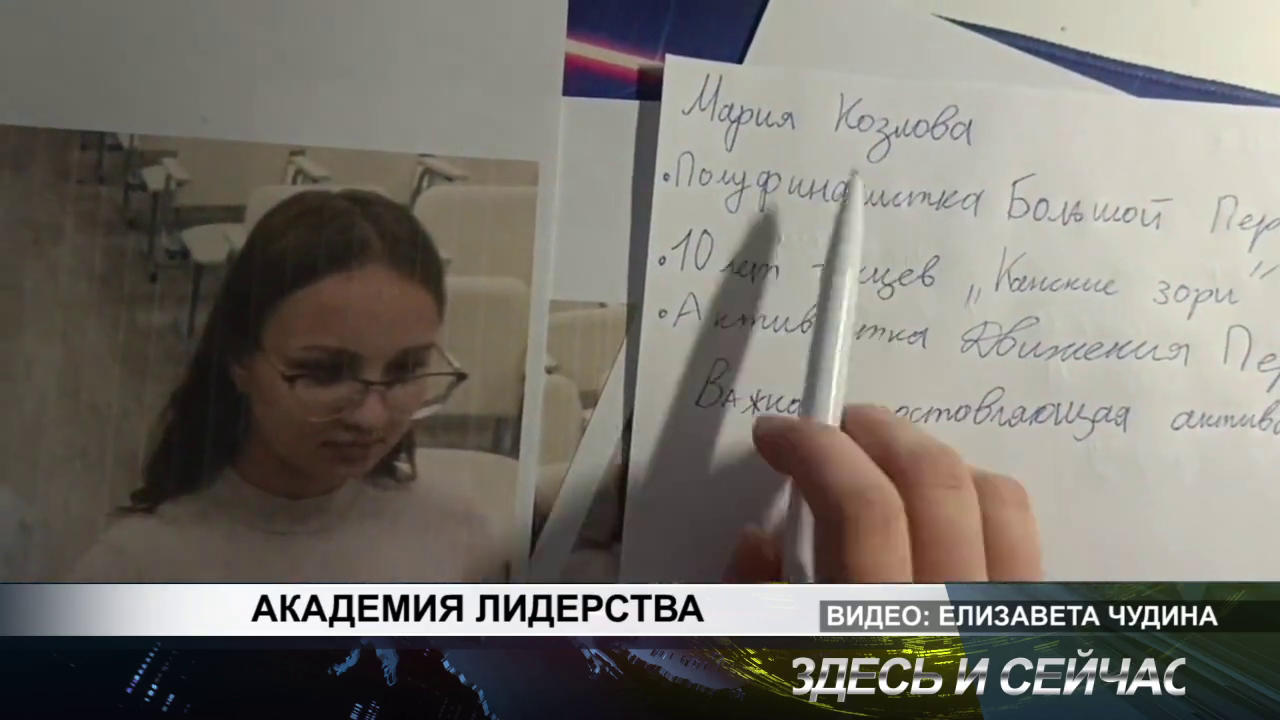 Мария Козлова
• Полуфиналистка Большой Пер
• 10 лет "Канские зори"
• Активистка Движения Пер
Важна активо
АКАДЕМИЯ ЛИДЕРСТВА
ВИДЕО: ЕЛИЗАВЕТА ЧУДИНА
ЗДЕСЬ И СЕЙЧАС